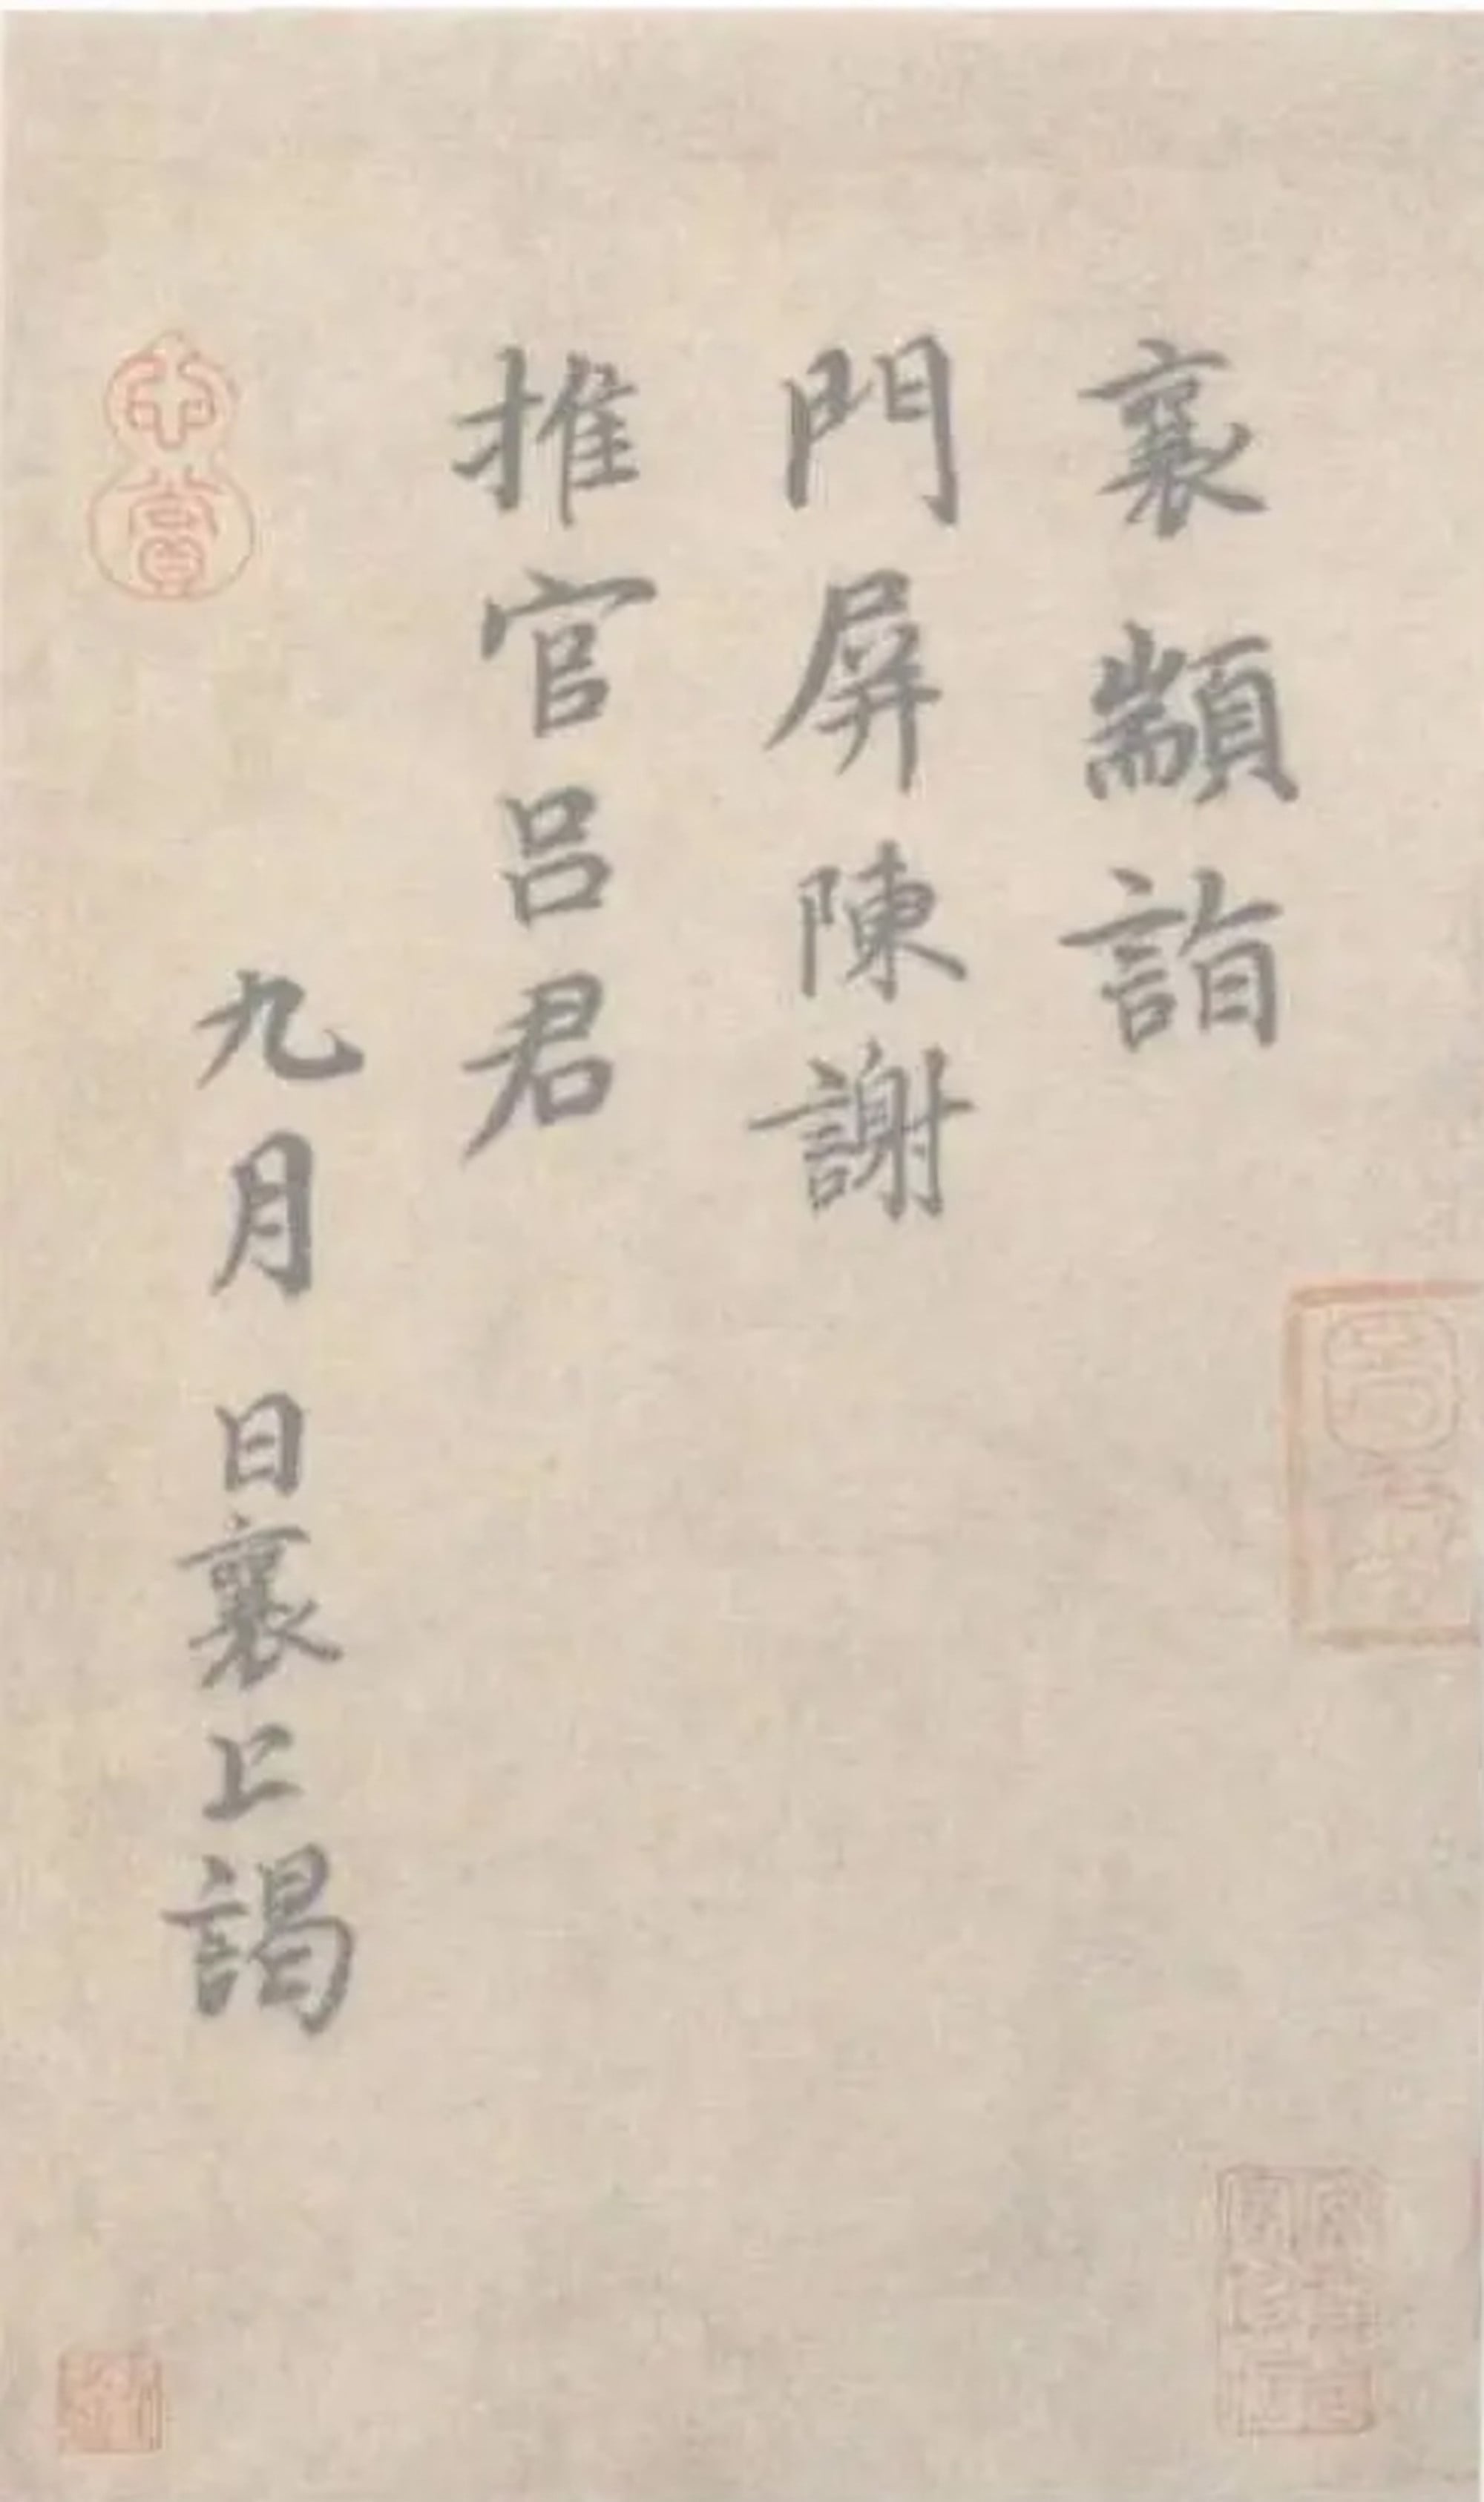 襄顓詣
門屏陳謝
推官呂君
九月 日襄上謁
心賞